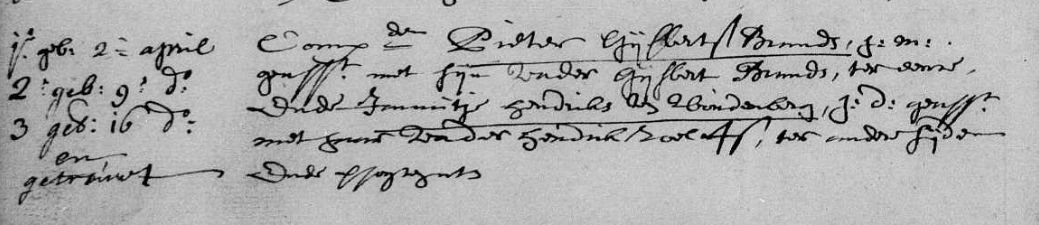 1e. geb: 2en april
2e. geb: 9e. do
3 geb: 16 do:
en
getrouwt
Compden Pieter Gijsbertss Brunds, j: m:
geasst. met sijn vader Gijsbert Brunds, ter eenre,
Ende Jannitje Hendricks, j: d: geasst.
met haar vader Hendrik Roelofss, ter andere sijden
Ende